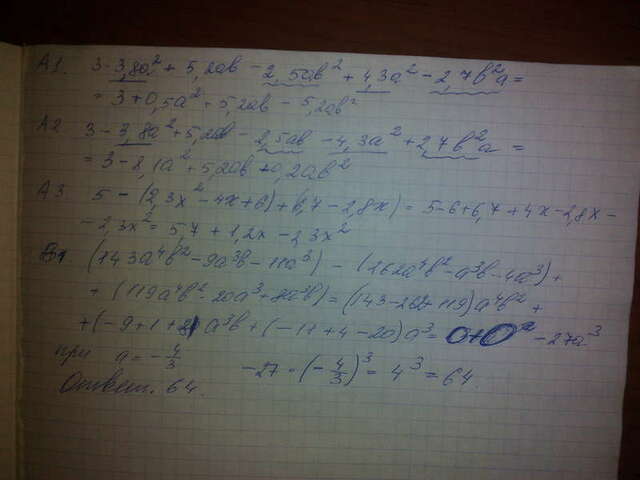 А1. 3-3,8a²+5,2ab-2,5ab²+4,3a²-2,7b²a=
=3+0,5a²+5,2ab-5,2ab²
А2 3-3,8a²+5,2ab-2,5ab-4,3a²+2,7b²a=
=3-8,1a²+5,2ab+0,2ab²
А3 5-(2,3x²-4x+6)+(6,7-2,8x)=5-6+6,7+4x-2,8x-
-2,3x²=5,7+1,2x-2,3x²
В1 (143a⁴b²-9a³b-11a³)-(262a⁴b²-a³b-4a³)+
+(119a⁴b²-20a³+8a³b)=(143-262+119)a⁴b²+
+(-9+1+8)a³b+(-11+4-20)a³=0+0-27a³
при a=-4/3 -27·(-4/3)³=4³=64.
Ответ. 64.